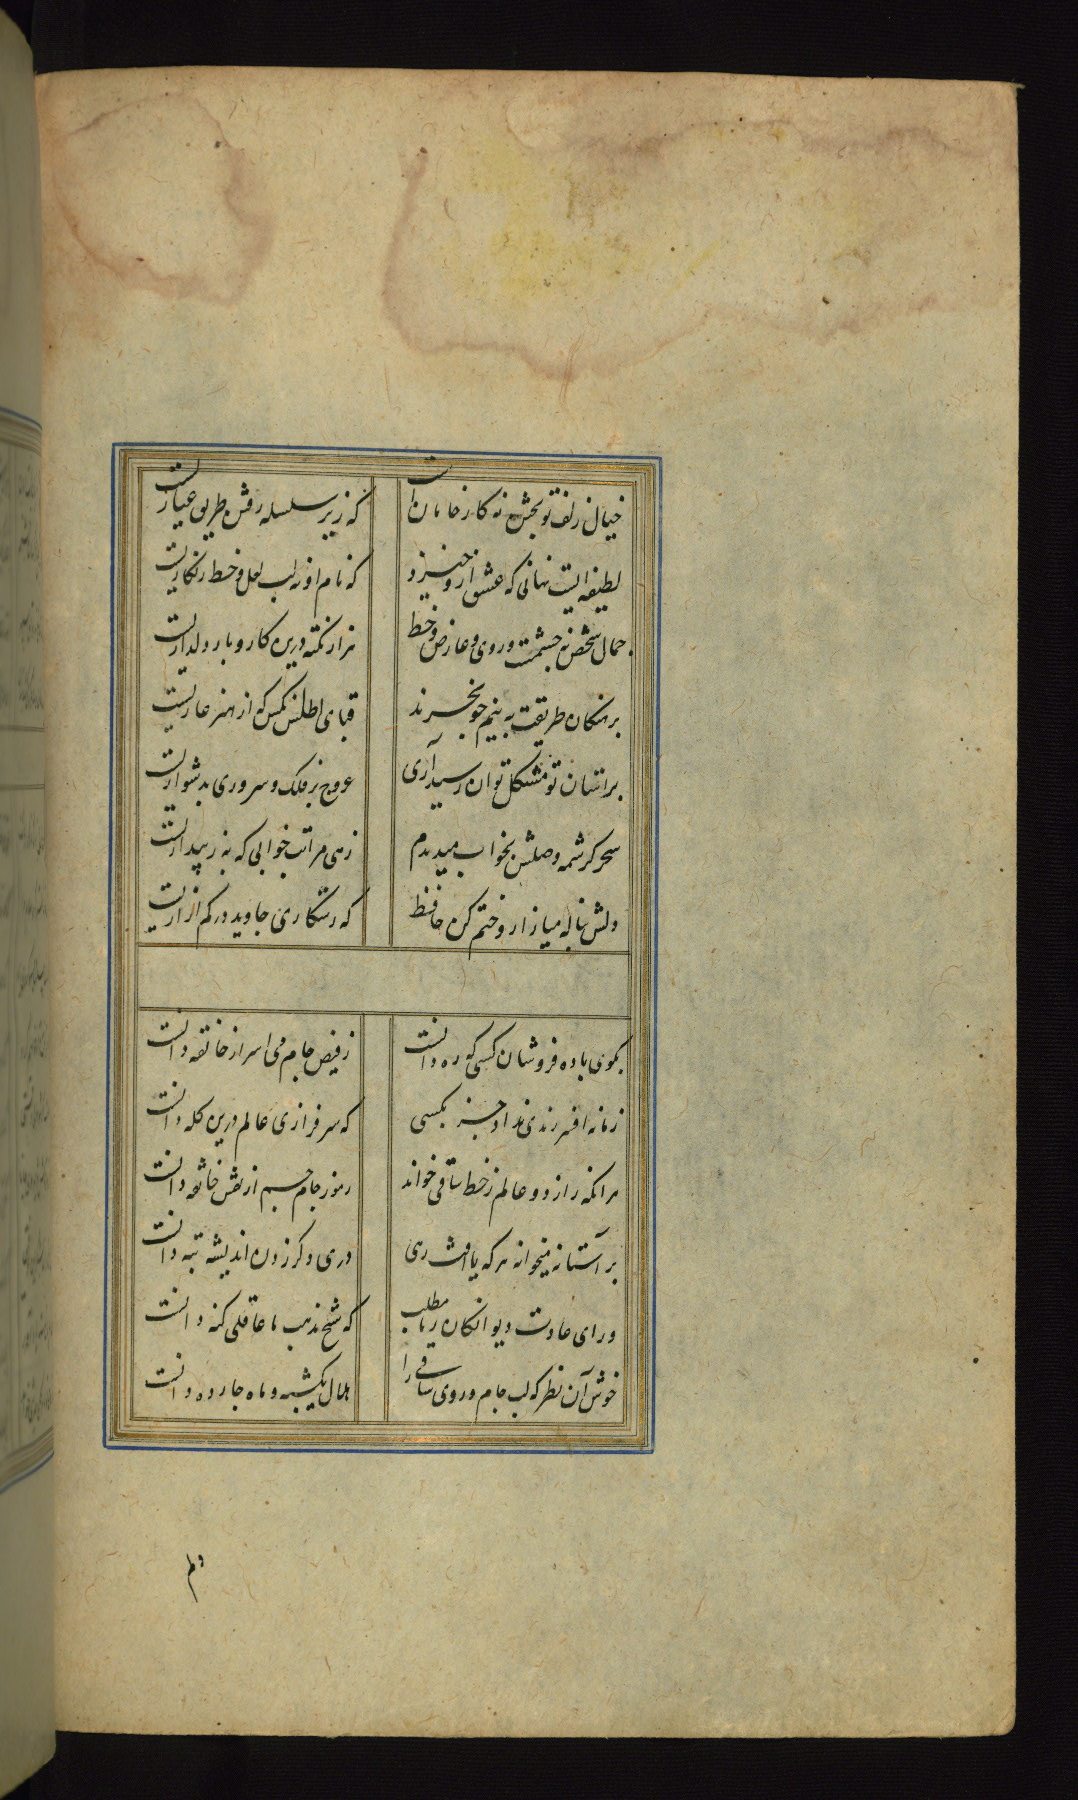 خیال زلف تو پختن نه کار خامان است
که زیر سلسله رفتن طریق عیاریست
لطیفه ایست نهانی که عشق ازو خیزد
که نام او نه لب لعل و خط زنکاریست
جمال شخص نه چشمست و روی و عارض و خط
هزار نکته درین کار و بار دلداریست
برهنکان طریقت به نیم جو نخرند
قبای اطلس آنکس که از هنر عاریست
بر استان تو مشکل توان رسید آری
عروج بر فلک و سروری بدشواریست
سحر کرشمه وصلش بخواب میدیدم
زهی مراتب خوابی که به ز بیداریست
دلش بناله میازار و ختم کن حافظ
که رستکاری جاوید در کم آزاریست
بکوی باده فروشان کسی که ره دانست
ز فیض جام می اسرار خانقه دانست
زمانه افسر رندی نداد جز بکسی
که سرفرازی عالم درین کله دانست
هر انکه راز دو عالم ز خط ساقی خواند
رموز جام جم از نقش خاک ره دانست
بر آستانه میخانه هر که یافت رهی
دری دکر زدن اندیشه تبه دانست
ورای عادت دیوانکان ز ما مطلب
که شیخ مذهب ما عاقلی کنه دانست
خوش آن نظر که لب جام و روی ساقی را
هلال یکشبه و ماه چارده دانست
دلم